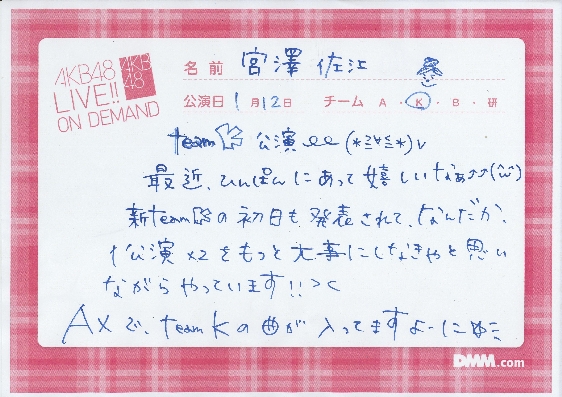 AKB48
LIVE!!
ON DEMAND
AKB
48
名前 宮澤佐江
公演日 1月12日 チーム A・K・B・研
team K 公演 (*≧∀≦*)v
最近、ひんぱんにあって嬉しいなぁ♪♪(^ω^)
新teamKの初日も発表されて、なんだか、
1公演×2をもっと大事にしなきゃと思い
ながらやっています!!><
AXで、team Kの曲が入ってますよーに
DMM.com